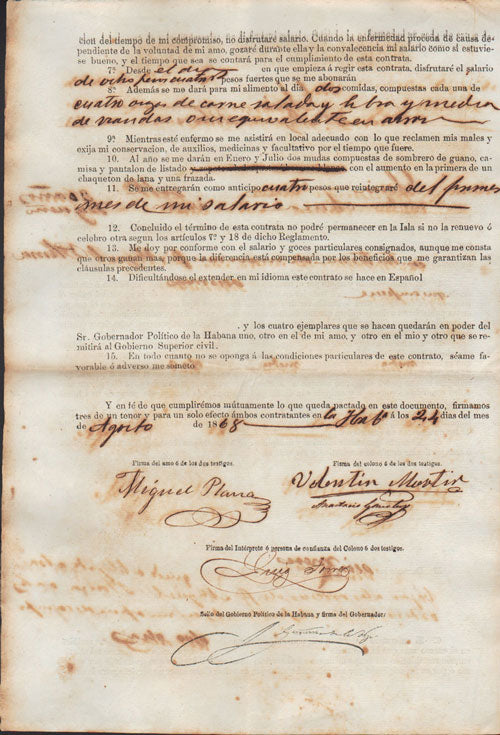 cion del tiempo de mi compromiso, no disfrutaré salario. Cuando la enfermedad proceda de causa de-
pendiente de la voluntad de mi amo, gozaré durante ella y la convalecencia mi salario como si estuvie-
se bueno, y el tiempo que sea se contará para el cumplimiento de esta contrata.
7ª Desde el dia en que empieza á regir esta contrata, disfrutaré el salario
de ocho pesos cuatro pesos fuertes que se me abonarán
8ª Además se me dará para mi alimento al dia dos comidas, compuestas cada una de
cuatro onzas de carne salada y libra y media
de viandas ó su equivalente en arroz
9ª Mientras esté enfermo se me asistirá en local adecuado con lo que reclamen mis males y
exija mi conservacion, de auxilios, medicinas y facultativo por el tiempo que fuere.
10. Al año se me darán en Enero y Julio dos mudas compuestas de sombrero de guano, ca-
misa y pantalon de listado con el aumento en la primera de un
chaqueton de lana y una frazada.
11. Se me entregarán como anticipo cuatro pesos que reintegraré del primer
mes de mi salario
12. Concluido el término de esta contrata no podré permanecer en la Isla si no la renuevo ó
celebro otra segun los artículos 7º y 18 de dicho Reglamento.
13. Me doy por conforme con el salario y goces particulares consignados, aunque me consta
que otros ganan mas, porque la diferencia está compensada por los beneficios que me garantizan las
cláusulas precedentes.
14. Dificultándose el extender en mi idioma este contrato se hace en Español
, y los cuatro ejemplares que se hacen quedarán en poder del
Sr. Gobernador Político de la Habana uno, otro en el de mi amo, y otro en el mio y otro que se re-
mitirá al Gobierno Superior civil.
15. En todo cuanto no se oponga á las condiciones particulares de este contrato, séame fa-
vorable ó adverso me someto
Y en fé de que cumplirémos mútuamente lo que queda pactado en este documento, firmamos
tres de un tenor y para un solo efecto ámbos contratantes en la Habª á los 24 dias del mes
de Agosto de 1868
Firma del amo ó de los dos testigos. Firma del colono ó de los dos testigos.
Miguel Plana Valentin Martin
Firma del Intérprete ó persona de confianza del Colono ó dos testigos.
Sello del Gobierno Político de la Habana y firma del Gobernador.